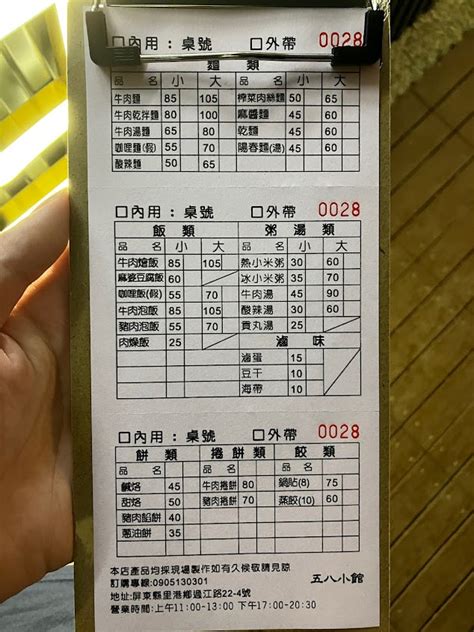 □內用：桌號 □外帶 0028
麵 類
品 名 小 大 品 名 小 大
牛肉麵 85 105 榨菜肉絲麵 50 65
牛肉乾拌麵 80 100 麻醬麵 45 60
牛肉湯麵 65 85 乾麵 45 60
咖哩麵(假) 55 70 陽春麵(湯) 45 60
酸辣麵 50 65
□內用：桌號 □外帶 0028
飯 類 粥 湯 類
品 名 小 大 品 名 小 大
牛肉燴飯 85 105 熱小米粥 30 60
麻婆豆腐飯 60 冰小米粥 35 70
咖哩飯(假) 55 70 牛肉湯 45 90
牛肉泡飯 55 70 酸辣湯 30 60
豬肉泡飯 55 70 貢丸湯 25
肉燥飯 25 滷 味
滷蛋 15
豆干 10
海帶 10
□內用：桌號 □外帶 0028
餅 類 捲 餅 類 餃 類
品 名 品 名 品 名
鹹烙 45 牛肉捲餅 80 鍋貼(8) 75
甜烙 50 豬肉捲餅 70 蒸餃(10) 60
豬肉餡餅 40
蔥油餅 35
本店產品均採現場製作如有久候敬請見諒
訂購專線:0905130301 五八小館
地址:屏東縣里港鄉過江路22-4號
營業時間:上午11:00-13:00 下午17:00-20:30